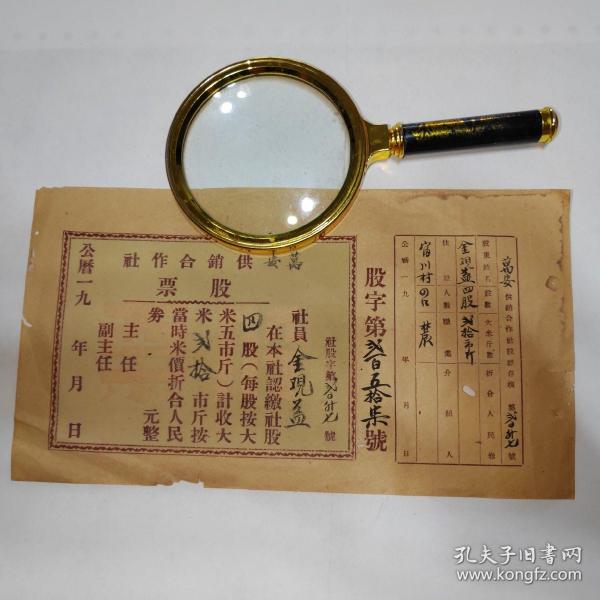 萬安供銷合作社股款存根
股東姓名 股數 大米斤數 折合人民券
金現益 四股 貳拾市斤
住址 人數 職業 介紹人
富川村 四口 農
公曆一九 年 月 日
股字第貳百五拾柒號
萬安供銷合作社
股票
社股字第 號
社員金現益
在本社認繳社股
四股(每股按大
米五市斤)計收大
米貳拾市斤按
當時米價折合人民
券 元整
主任
副主任
公曆一九 年 月 日
孔夫子旧书网
www.kongfz.com